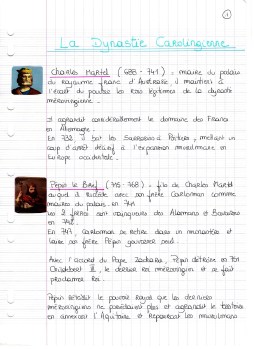 1
La Dynastie Carolingienne
Charles Martel (688 - 741) = maire du palais
du royaume franc d'Austrasie, il maintient à
l'écart du pouvoir les rois légitimes de la dynastie
mérovingienne.
Il agrandit considérablement le domaine des Francs
en Allemagne.
En 732, il bat les Sarrasins à Poitiers, mettant un
coup d'arrêt décisif à l'expansion musulmane en
Europe occidentale.
Pépin le Bref (715 - 768) = fils de Charles Martel
auquel il succède avec son frère Carloman comme
maires du palais en 741
Les 2 frères sont vainqueurs des Alamans et Bavarois
en
En 747, Carloman se retire dans un monastère et
laisse son frère Pépin gouverner seul.
Avec l'accord du Pape Zacharie, Pépin détrône en 751
Childéric III, le dernier roi mérovingien et se fait
proclamer Roi.
Pépin rétablit le pouvoir royal que les derniers
mérovingiens ne possédaient plus et agrandit le territoire
en annexant l'Aquitaine et repoussant les musulmans